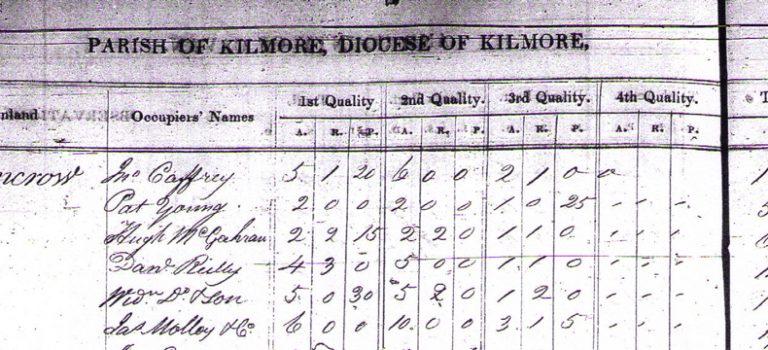 PARISH OF KILMORE, DIOCESE OF KILMORE,
nland Occupiers' Names 1st Quality 2nd Quality. 3rd Quality. 4th Quality. T
A. R. P. A. R. P. A. R. P. A. R. P.
ncrow Jno Caffrey 5 1 20 6 0 0 2 1 0 0
Pat Young. 2 0 0 2 0 0 1 0 25 - - -
Hugh McGahran 2 2 15 2 2 0 1 1 0 - - -
Danl Reilly 4 3 0 5 0 0 1 1 0 - - -
Widw Do & Son 5 0 30 5 2 0 1 2 0 - - -
Jas Molloy & Co 6 0 0 10 0 0 3 1 5 - - -